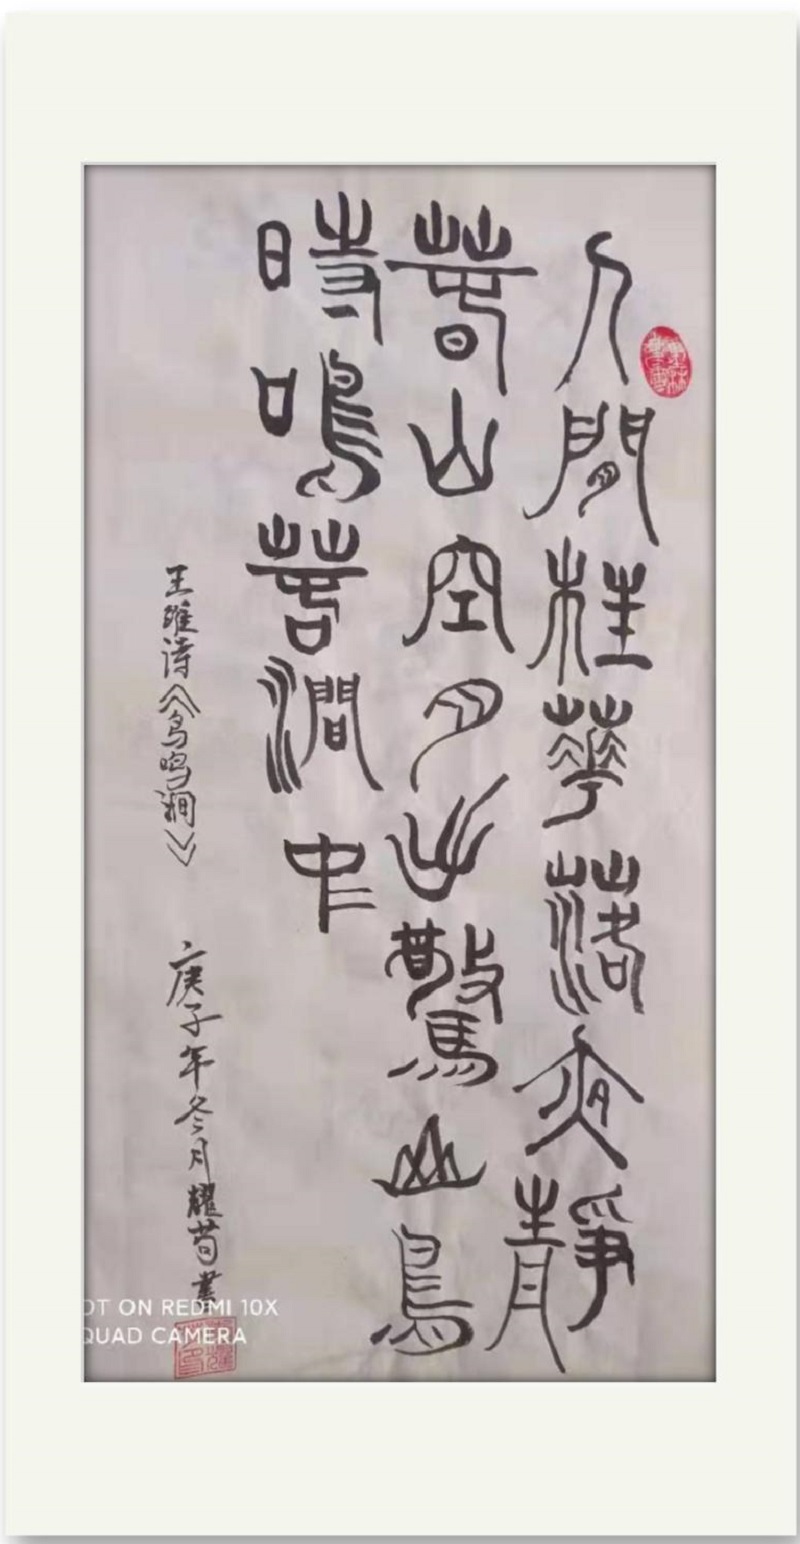 人間桂華落夜靜
春山空月出驚山鳥
時鳴春澗中
王維诗《鸟鸣澗》 庚子年冬月耀苟書
OT ON REDMI 10X
QUAD CAMERA